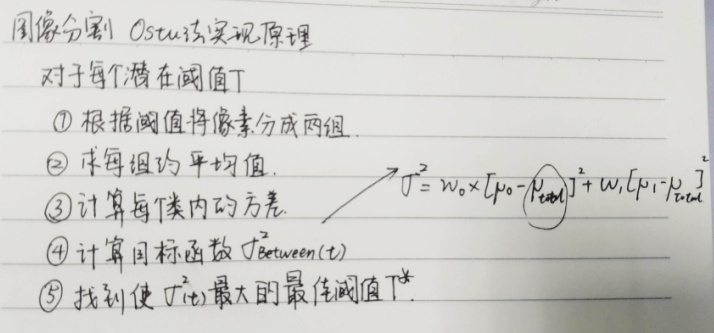 图像分割 Ostu法实现原理
对于每个潜在阈值T
① 根据阈值将像素分成两组.
② 求每组的平均值.
③ 计算每个类内的方差.
④ 计算目标函数 σ²Between(t)
σ² = w₀×[μ₀-μtotal]² + w₁[μ₁-μtotal]²
⑤ 找到使 σ²(t) 最大的最佳阈值T*.